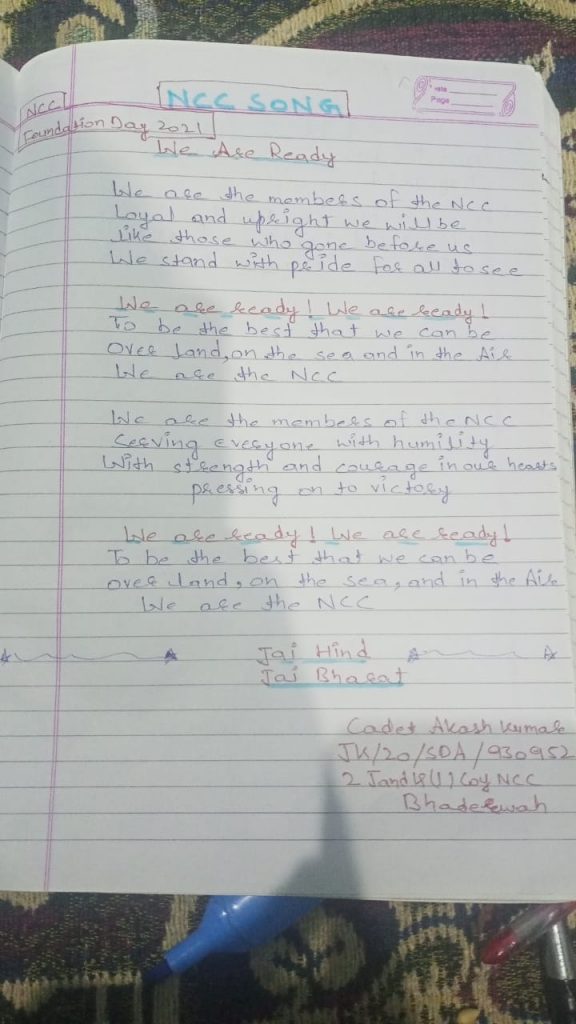 NCC SONG
Date
Page
NCC
Foundation Day 2021
We Are Ready
We are the members of the NCC
Loyal and upright we will be
Like those who gone before us
We stand with pride for all to see
We are ready! We are ready!
To be the best that we can be
Over land, on the sea and in the Air
We are the NCC
We are the members of the NCC
Serving everyone with humility
With strength and courage in our hearts
pressing on to victory
We are ready! We are ready!
To be the best that we can be
over land, on the sea, and in the Air
We are the NCC
Jai Hind
Jai Bharat
Cadet Akash Kumar
JK/20/SDA/930952
2 J and K (I) Coy NCC
Bhaderwah